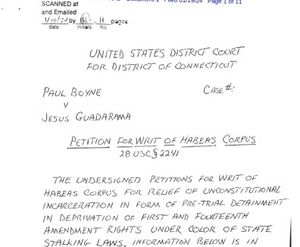 SCANNED at
and Emailed
Filed 01/19/24 Page 1 of 11
by pages
date initials No.
UNITED STATES DISTRICT COURT
FOR DISTRICT OF CONNECTICUT
PAUL BOYNE
CASE #:
V
JESUS GUADARAMA
PETITION FOR WRIT OF HABEAS CORPUS
28 USC § 2241
THE UNDERSIGNED PETITIONS FOR WRIT OF
HABEAS CORPUS FOR RELIEF OF UNCONSTITUTIONAL
INCARCERATION IN FORM OF PRE-TRIAL DETAINMENT
IN DEPRIVATION OF FIRST AND FOURTEENTH
AMENDMENT RIGHTS UNDER COLOR OF STATE
STALKING LAWS. INFORMATION BELOW IS IN